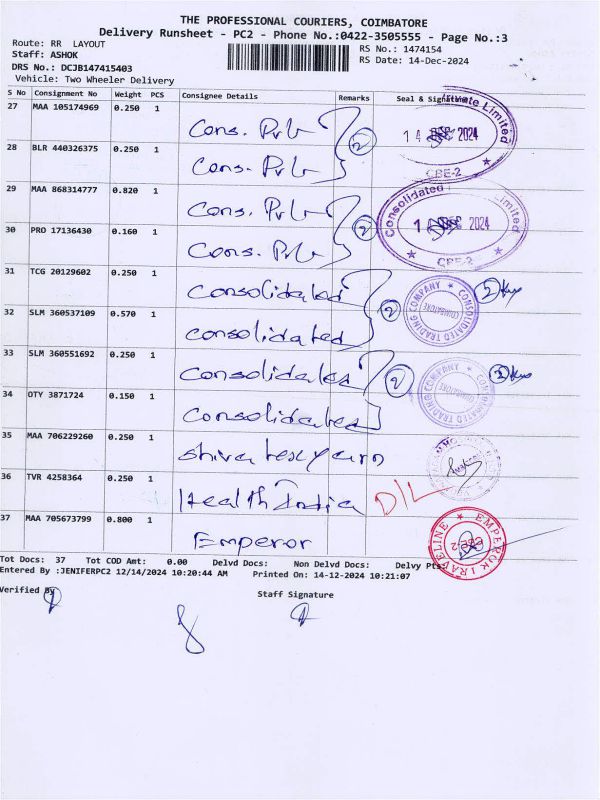 THE PROFESSIONAL COURIERS, COIMBATORE
Delivery Runsheet - PC2 - Phone No.:0422-3505555 - Page No.:3
Route: RR LAYOUT
RS No.: 1474154
Staff: ASHOK
RS Date: 14-Dec-2024
DRS No.: DCJB147415403
Vehicle: Two Wheeler Delivery
S No Consignment No Weight PCS Consignee Details Remarks Seal & Signature
27 MAA 105174969 0.250 1 Cons. Pvt 14 DEC 2024 Private Limited
28 BLR 440326375 0.250 1 Cons. Pvt 2 CBE-2
29 MAA 868314777 0.820 1 Cons. Pvt Consolidated Limited
30 PRO 17136430 0.160 1 Cons. Pvt 2 1 DEC 2024 CBE-2
31 TCG 20129602 0.250 1 Consolidated CONSOLIDATED TRADING COMPANY COIMBATORE 2
32 SLM 360537109 0.570 1 consolidated 2
33 SLM 360551692 0.250 1 Consolidated 2 CONSOLIDATED TRADING COMPANY COIMBATORE 2
34 OTY 3871724 0.150 1 Consolidated
35 MAA 706229260 0.250 1 Shiva texyarn
36 TVR 4258364 0.250 1 Health India D/L
37 MAA 705673799 0.800 1 Emperor EMPEROR TRAVELINE CBE-2
Tot Docs: 37 Tot COD Amt: 0.00 Delvd Docs: Non Delvd Docs: Delvy Pts:
Entered By :JENIFERPC2 12/14/2024 10:20:44 AM Printed On: 14-12-2024 10:21:07
Verified By
Staff Signature